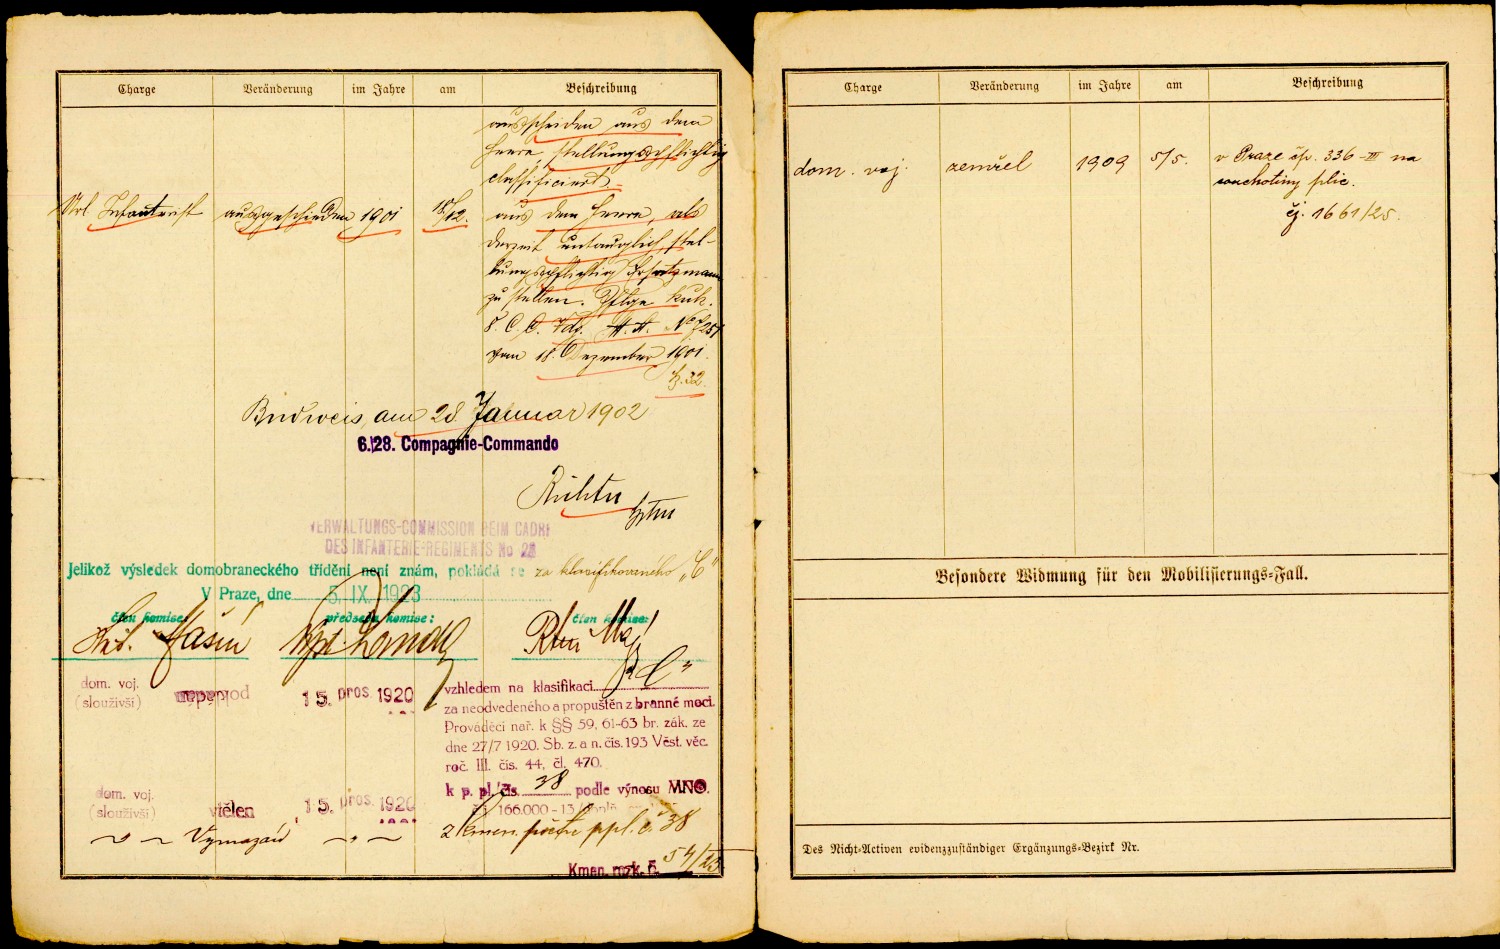 Charge Veränderung im Jahre am Beschreibung
ausscheiden aus dem
Heere, stellungspflichtig
classificiert.
Infanterist ausgeschieden 1901 18/12. aus dem Heere, als
derzeit untauglich stel-
lungspflichtig Ersatzmann
zu stellen.
8. C. C. N° 7251
vom 18. Dezember 1901.
Budweis, am 28 Januar 1902
6./28. Compagnie-Commando
Hptm
VERWALTUNGS-COMMISSION BEIM CADRE
DES INFANTERIE-REGIMENTS No 28
Jelikož výsledek domobraneckého třídění není znám, pokládá se za klasifikovaného „C"
V Praze, dne 5. IX. 1923
člen komise: předseda komise: člen komise:
dom. voj.
(sloužívší) 15. pros. 1920 vzhledem na klasifikaci „C"
za neodvedeného a propuštěn z branné moci.
Prováděcí nař. k §§ 59, 61-63 br. zák. ze
dne 27/7 1920. Sb. z. a n. čís. 193 Věst. věc.
roč. III. čís. 44, čl. 470.
dom. voj.
(sloužívší) vtělen 15. pros. 1920 k p. pl. čís. 38 podle výnosu MNO.
čj. 166.000-13/
Vymazán z kmen. počtu ppl. č. 38
Kmen. rozk. č. 54/23
Charge Veränderung im Jahre am Beschreibung
dom. voj. zemřel 1909 5/5. v Praze čp. 336-III na
souchotiny plic.
čj. 1661/25.
Besondere Widmung für den Mobilisierungs-Fall.
Des Nicht-Activen evidenzzuständiger Ergänzungs-Bezirk Nr.